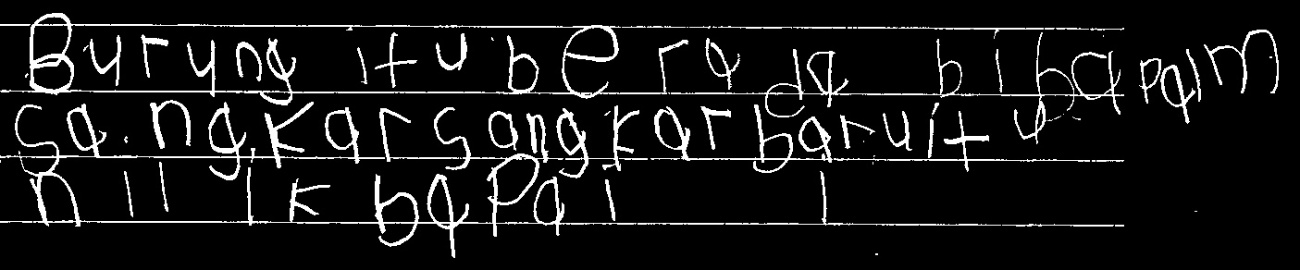 Burung itu berada bibapalm
sangkarsangkarbaruitu
nillik bapai